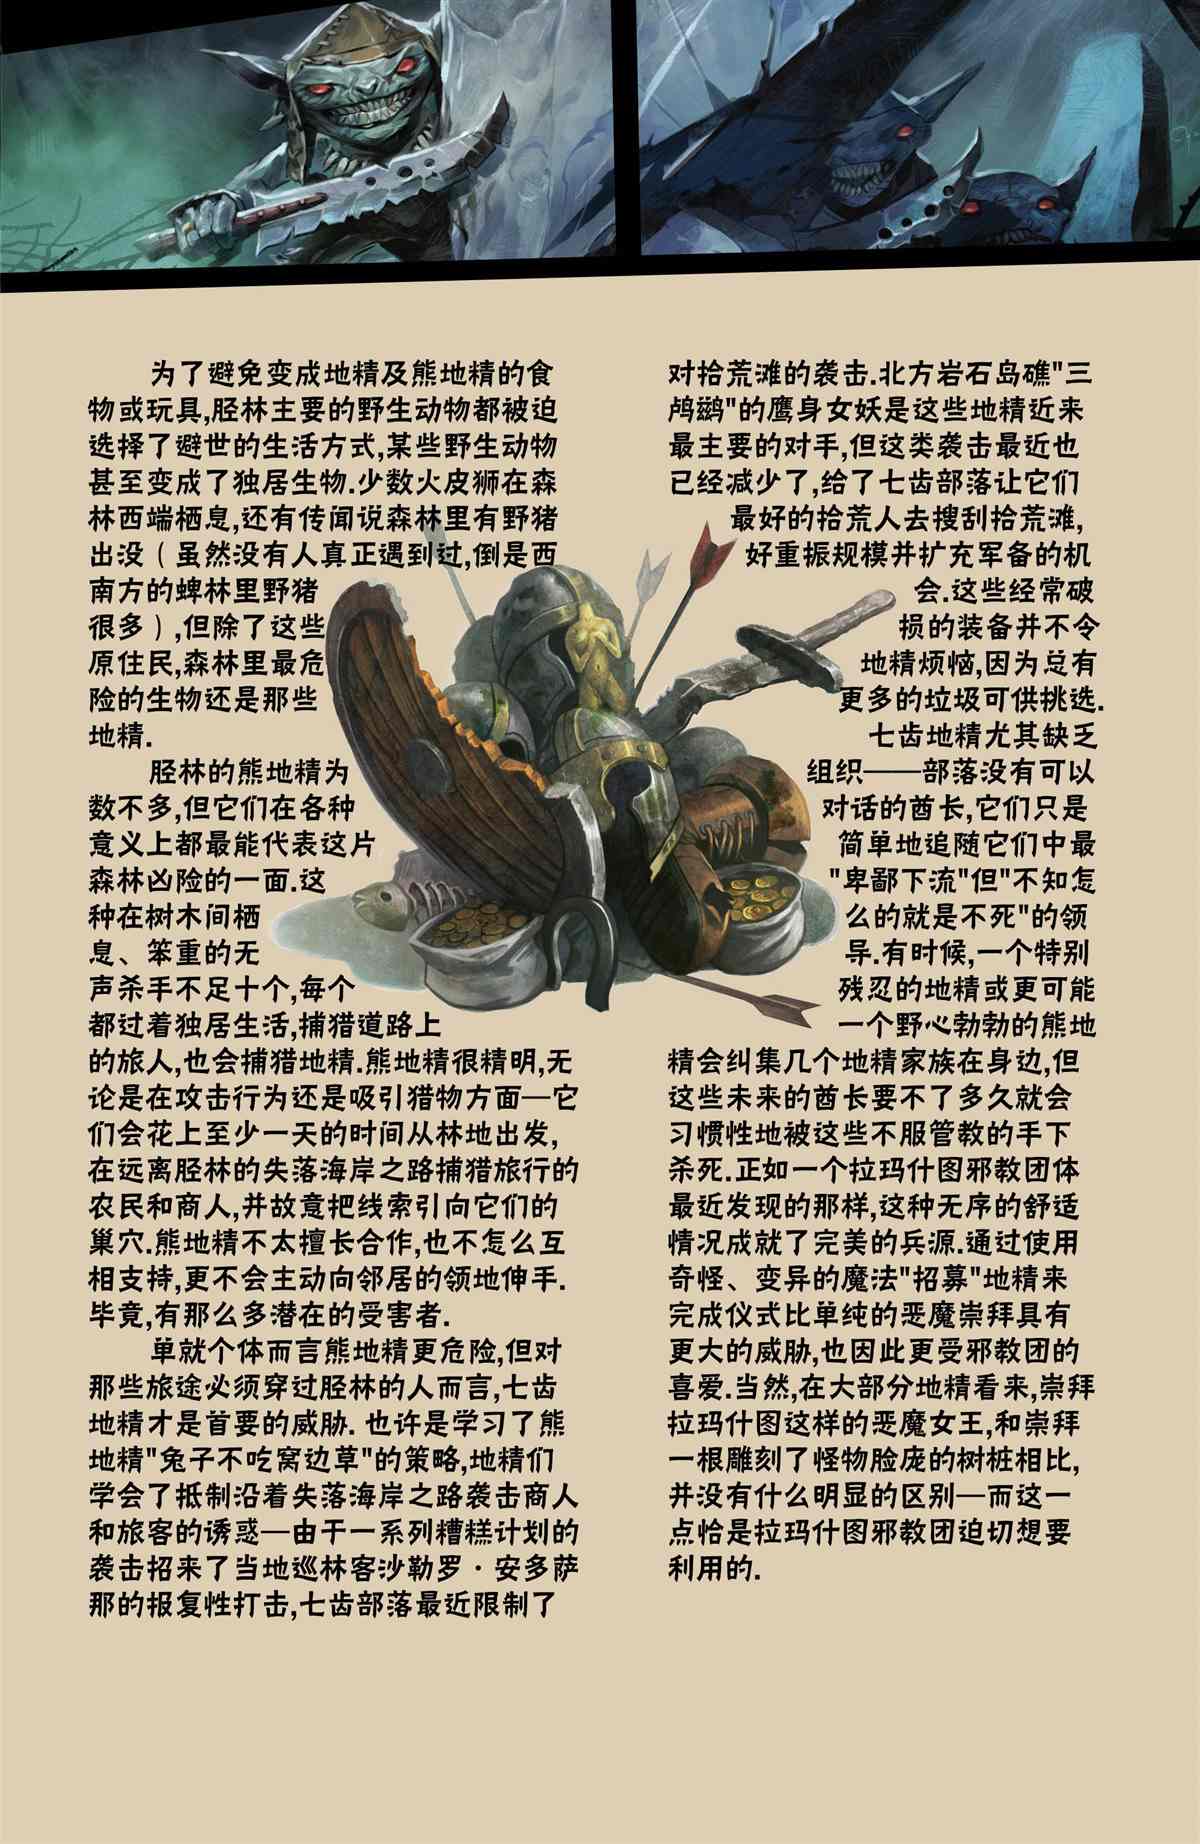 为了避免变成地精及熊地精的食
物或玩具,胫林主要的野生动物都被迫
选择了避世的生活方式,某些野生动物
甚至变成了独居生物.少数火皮狮在森
林西端栖息,还有传闻说森林里有野猪
出没（虽然没有人真正遇到过,倒是西
南方的蜱林里野猪
很多）,但除了这些
原住民,森林里最危
险的生物还是那些
地精.
胫林的熊地精为
数不多,但它们在各种
意义上都最能代表这片
森林凶险的一面.这
种在树木间栖
息、笨重的无
声杀手不足十个,每个
都过着独居生活,捕猎道路上
的旅人,也会捕猎地精.熊地精很精明,无
论是在攻击行为还是吸引猎物方面—它
们会花上至少一天的时间从林地出发,
在远离胫林的失落海岸之路捕猎旅行的
农民和商人,并故意把线索引向它们的
巢穴.熊地精不太擅长合作,也不怎么互
相支持,更不会主动向邻居的领地伸手.
毕竟,有那么多潜在的受害者.
单就个体而言熊地精更危险,但对
那些旅途必须穿过胫林的人而言,七齿
地精才是首要的威胁. 也许是学习了熊
地精"兔子不吃窝边草"的策略,地精们
学会了抵制沿着失落海岸之路袭击商人
和旅客的诱惑—由于一系列糟糕计划的
袭击招来了当地巡林客沙勒罗·安多萨
那的报复性打击,七齿部落最近限制了
对拾荒滩的袭击.北方岩石岛礁"三
鸬鹚"的鹰身女妖是这些地精近来
最主要的对手,但这类袭击最近也
已经减少了,给了七齿部落让它们
最好的拾荒人去搜刮拾荒滩,
好重振规模并扩充军备的机
会.这些经常破
损的装备并不令
地精烦恼,因为总有
更多的垃圾可供挑选.
七齿地精尤其缺乏
组织——部落没有可以
对话的酋长,它们只是
简单地追随它们中最
"卑鄙下流"但"不知怎
么的就是不死"的领
导.有时候,一个特别
残忍的地精或更可能
一个野心勃勃的熊地
精会纠集几个地精家族在身边,但
这些未来的酋长要不了多久就会
习惯性地被这些不服管教的手下
杀死.正如一个拉玛什图邪教团体
最近发现的那样,这种无序的舒适
情况成就了完美的兵源.通过使用
奇怪、变异的魔法"招募"地精来
完成仪式比单纯的恶魔崇拜具有
更大的威胁,也因此更受邪教团的
喜爱.当然,在大部分地精看来,崇拜
拉玛什图这样的恶魔女王,和崇拜
一根雕刻了怪物脸庞的树桩相比,
并没有什么明显的区别—而这一
点恰是拉玛什图邪教团迫切想要
利用的.